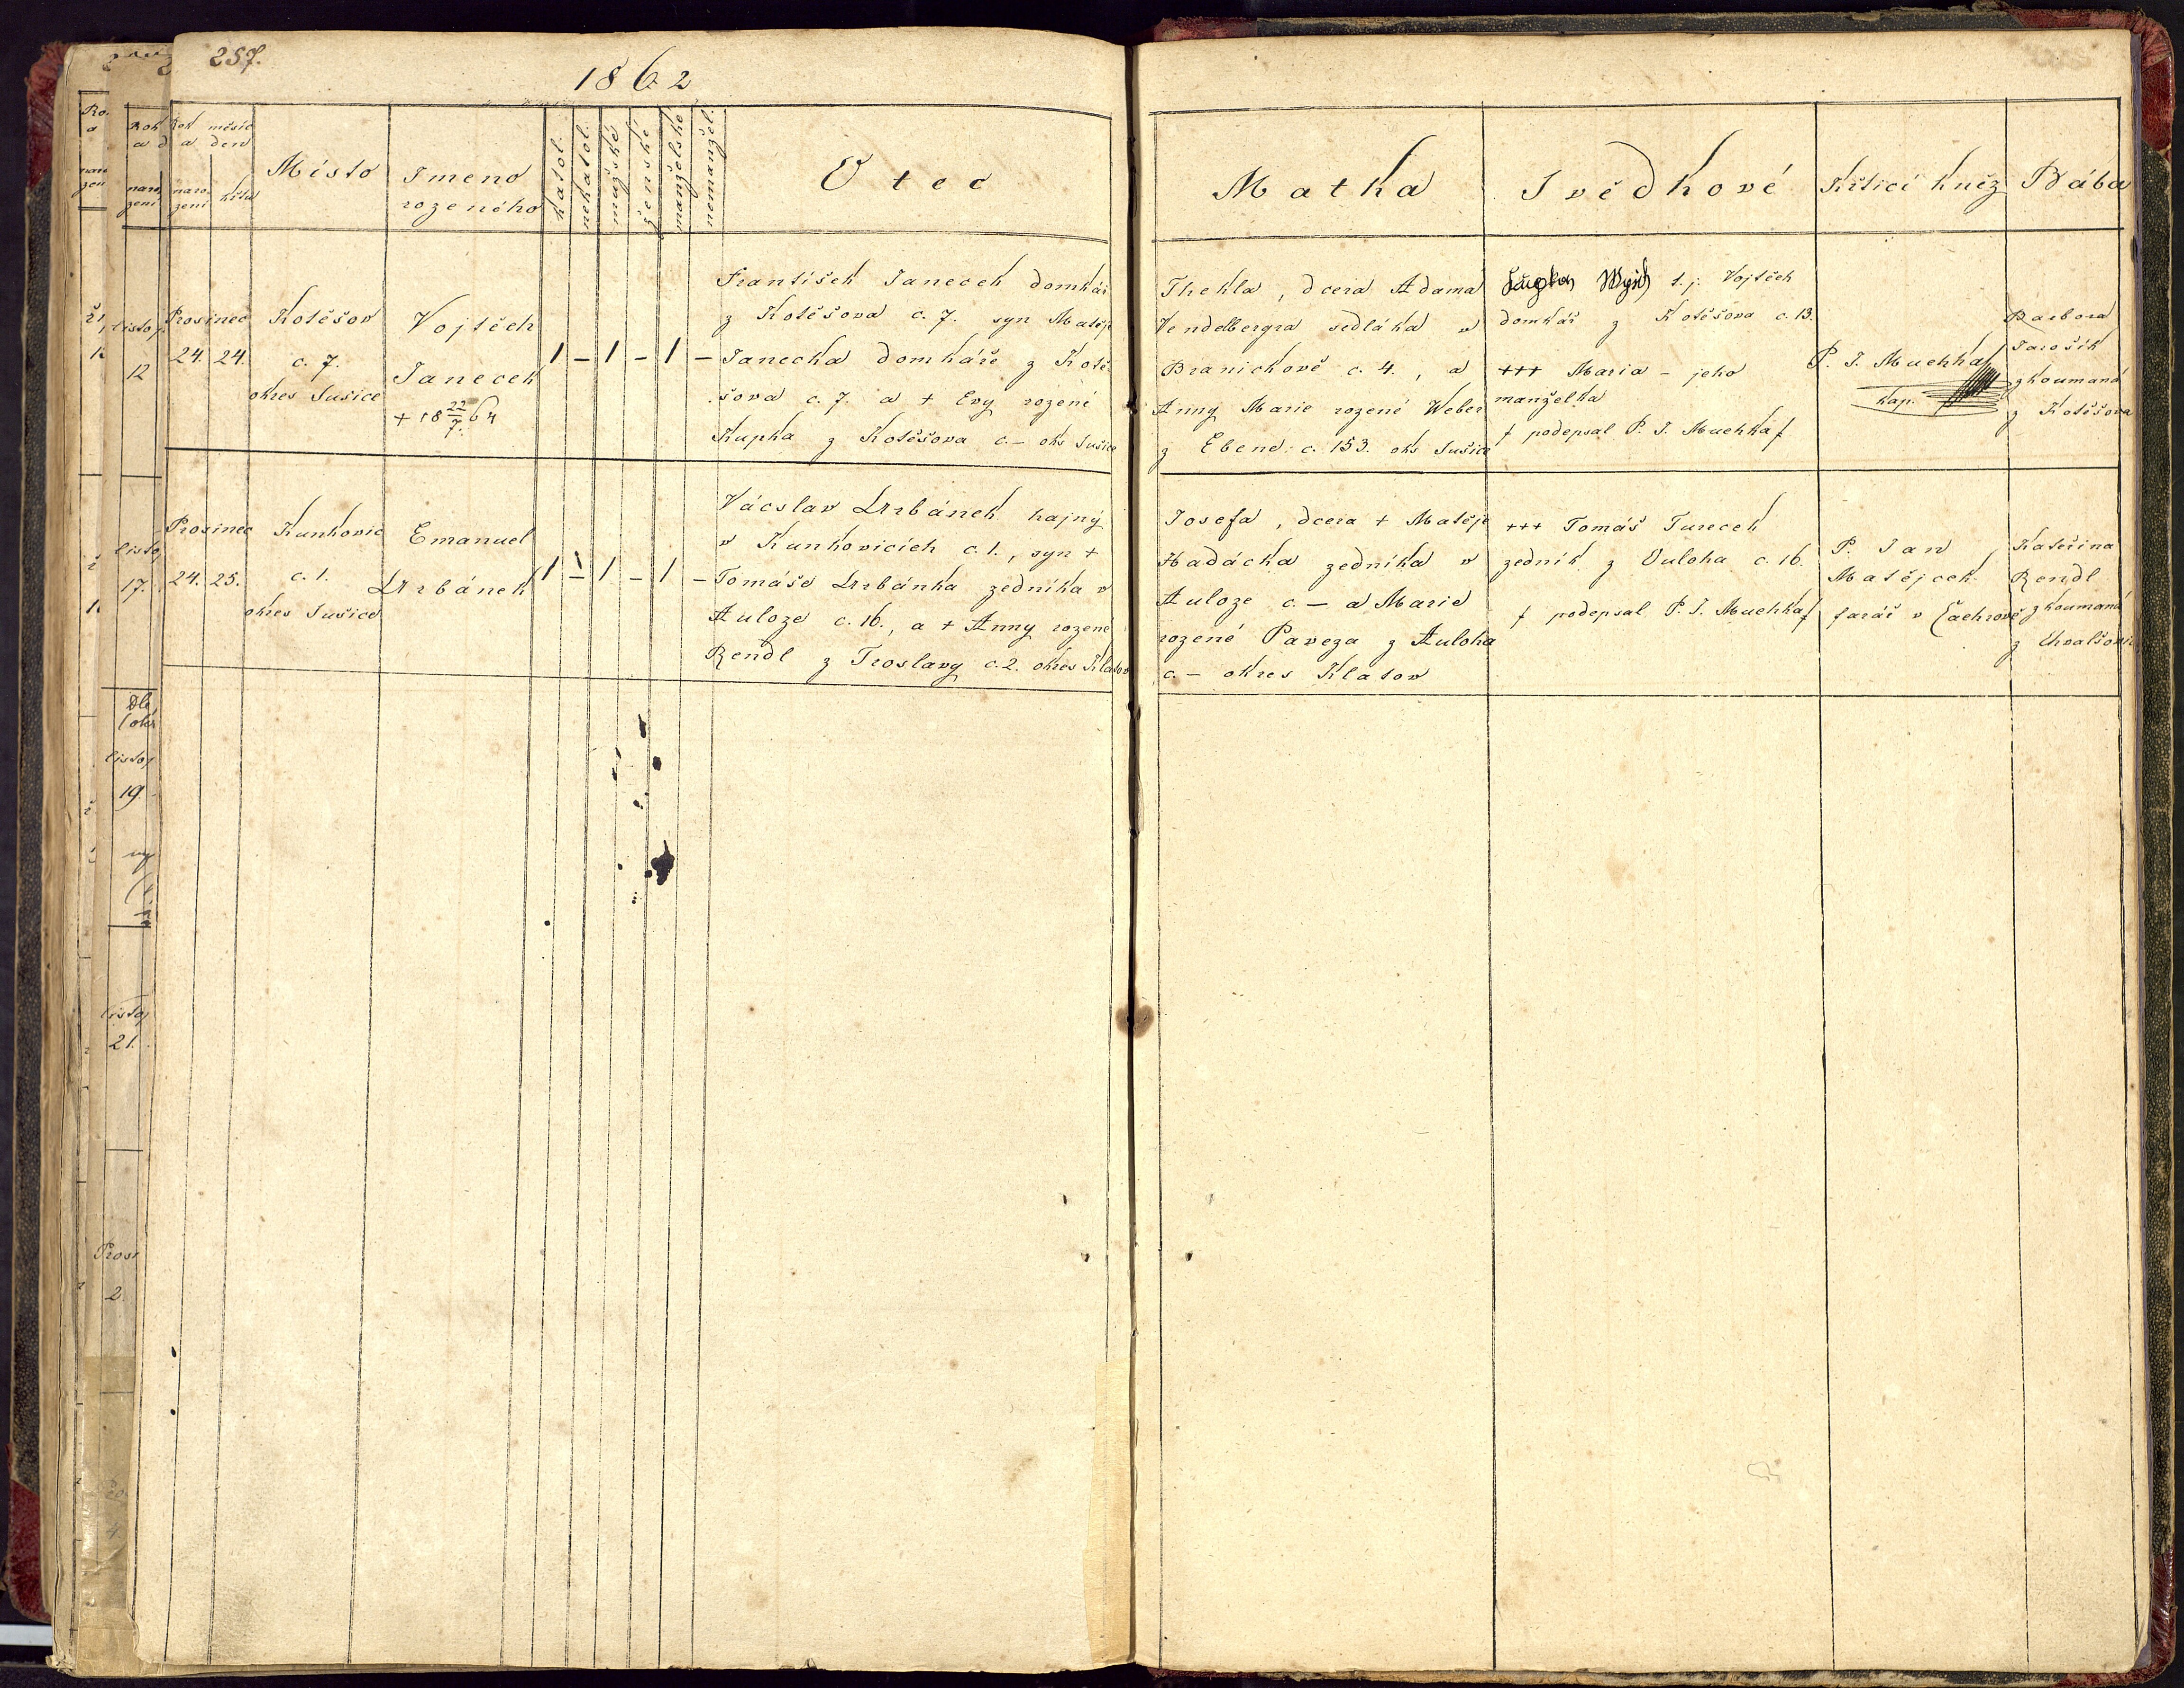 257.
1862
Rok měsíc
a den
naro
zení
křtu
Místo
Jmeno
rozeného
katol.
nekatol.
mužské
ženské
manželské
nemanžel.
Otec
Matka
Svědkové
Křticí kněz
Bába
Prosinec
24. 24.
Kotěšov
c. 7.
okres Sušice
Vojtěch
Janecek
+ 18 22/7. 64
1 – 1 – 1 –
František Janecek domkář
z Kotěšova c. 7. syn Matěje
Janecka domkáře z Kotě
šova c. 7. a + Evy rozené
Kupka z Kotěšova c. – oks Sušice
Thekla, dcera Adama
Vendelbergra sedláka v
Branickově c. 4., a
Anny Marie rozené Weber
z Ebene c. 153. oks Sušice
t. j. Vojtěch
domkář z Kotěšova c. 13.
+++ Maria – jeho
manželka
podepsal P. J. Muchka
P. J. Muchka
kap.
Barbora
Jarošík
zkoumaná
z Kotěšova
Prosinec
24. 25.
Kunkovic
c. 1.
okres Sušice
Emanuel
Urbánek
1 – 1 – 1 –
Vácslav Urbánek hajný
v Kunkovicích c. 1., syn +
Tomáše Urbánka zedníka v
Auloze c. 16., a + Anny rozené
Rendl z Troslavy c. 2. okres Klatov
Josefa, dcera + Matěje
Hadácka zedníka v
Auloze c. – a Marie
rozené Paveza z Auloha
c. – okres Klatov
+++ Tomáš Turecek
zedník z Ouloha c. 16.
podepsal P. J. Muchka
P. Jan
Matějcek
farář v Čachrově
Kateřina
Rendl
zkoumaná
z Chvalšovic